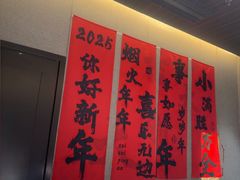 2025
你好新年
烟火年年
喜乐无边
岁岁年年
事事如愿
小满胜
万全